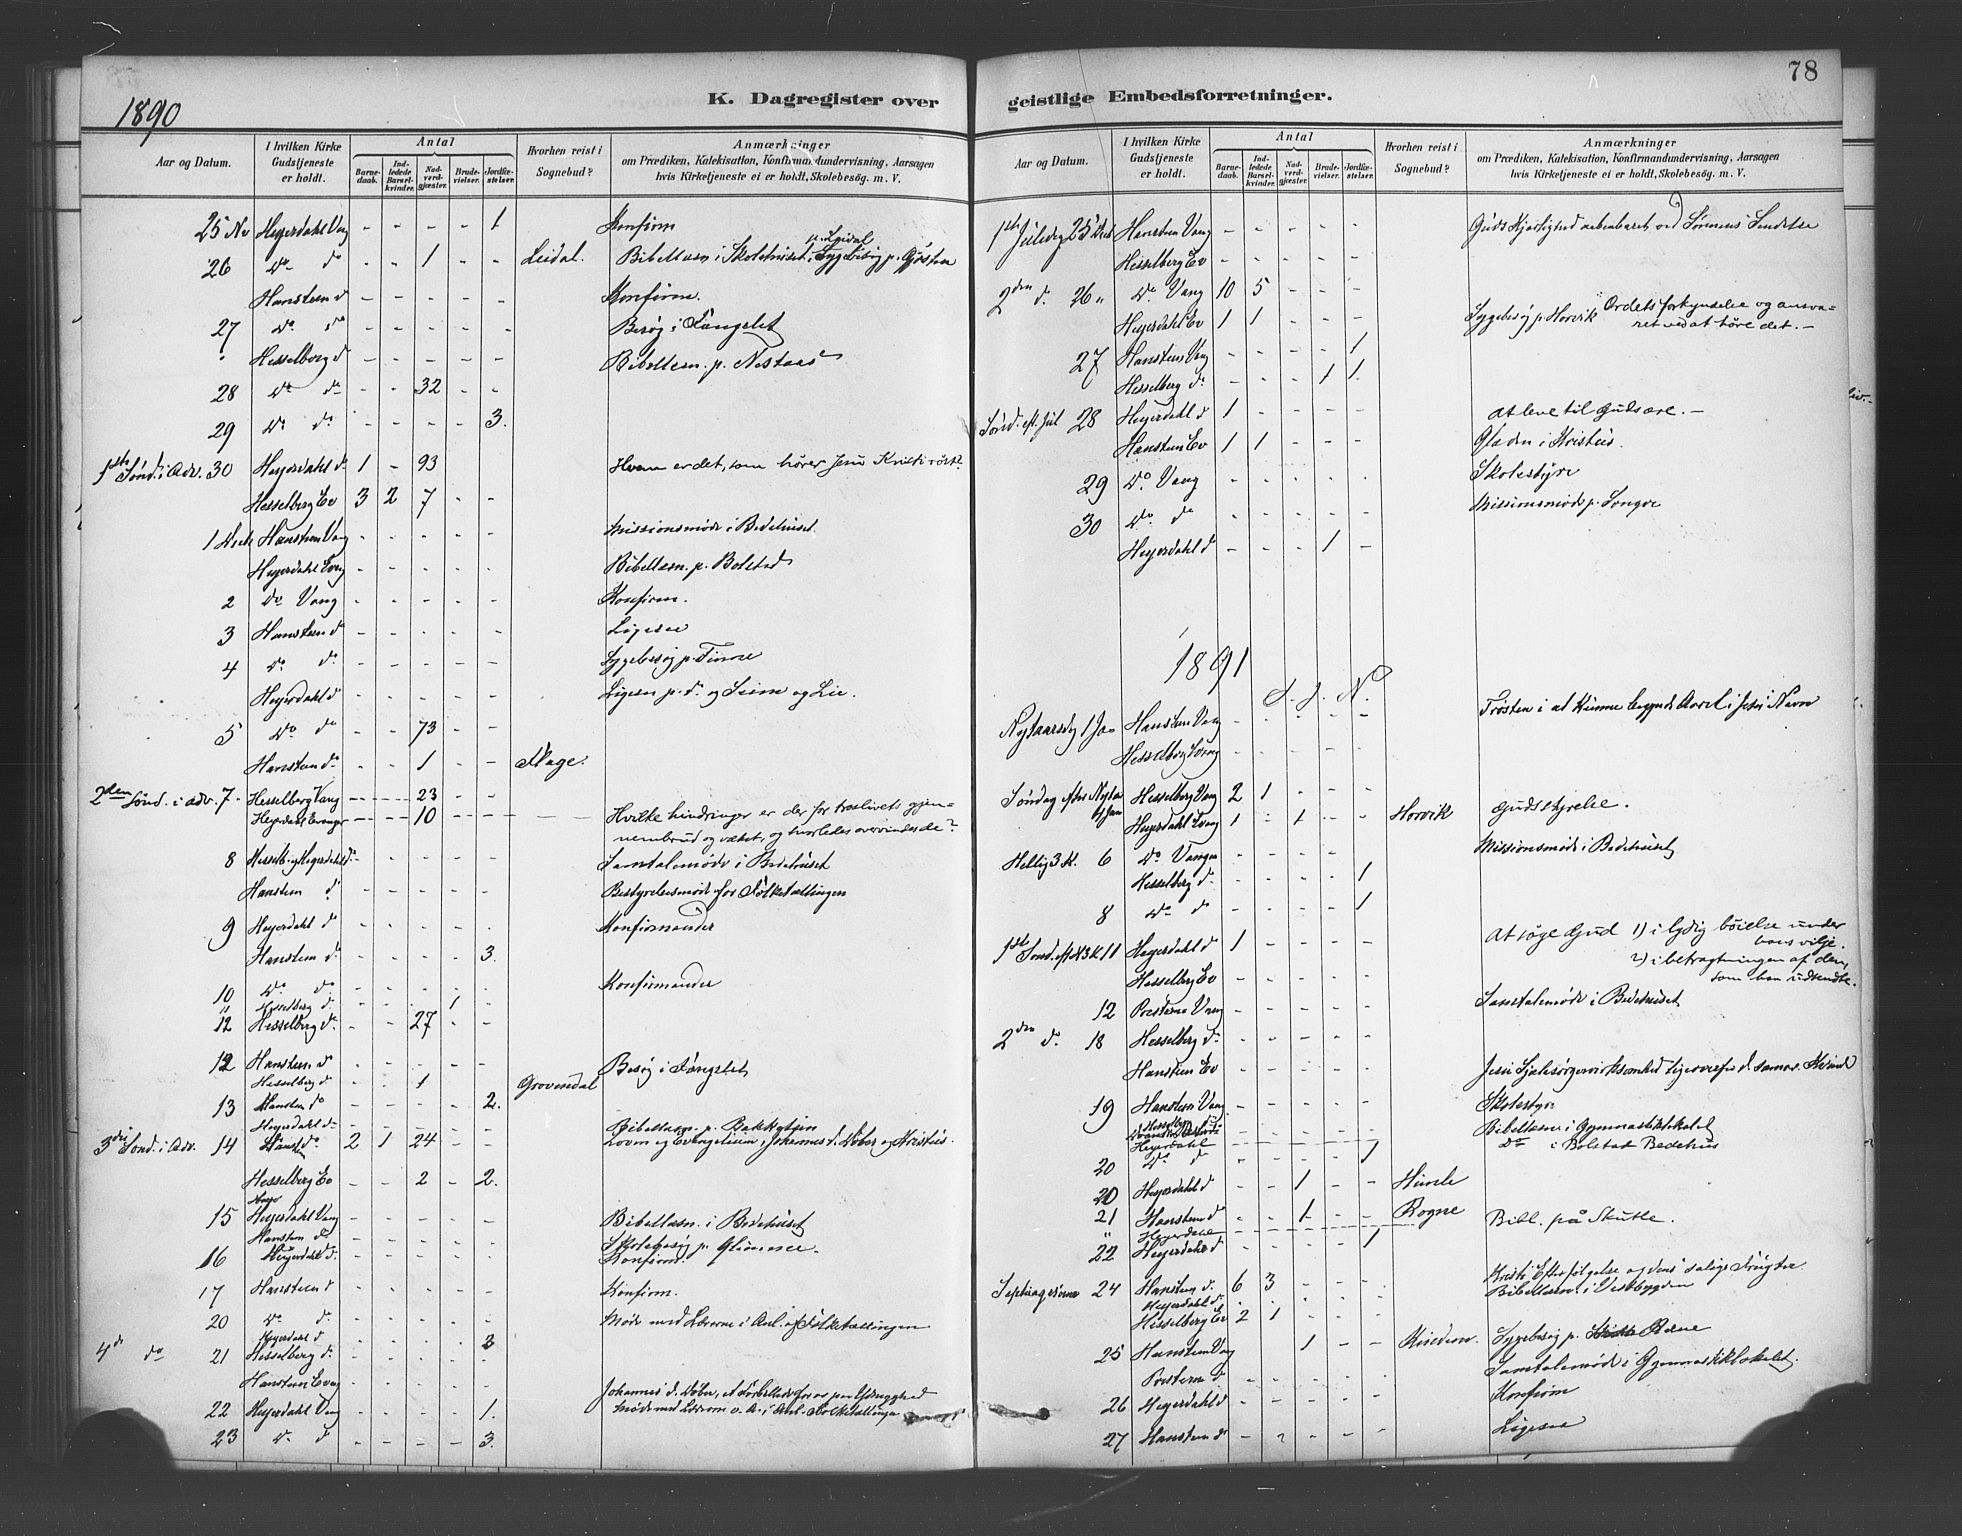 78
1890
K. Dagregister over
geistlige Embedsforretninger.
Aar og Datum.
I hvilken Kirke Gudstjeneste er holdt.
Antal
Barnedaab.
Indledede Barselkvinder.
Nadverdgjæster.
Brudevielser.
Jordfæstelser.
Hvorhen reist i Sognebud?
Anmærkninger
om Prædiken, Katekisation, Konfirmandundervisning, Aarsagen
hvis Kirketjeneste ei er holdt, Skolebesøg. m. V.
25 Nov Heyerdahl Vang - - - - 1 Konfirm
26 Do do - - 1 - - Leidal. Bibellæsn. i Skolehuset
Hansteen d - - - - - Konfirm.
27 Do do - - - - - Besøg i Fængslet
" Hesselberg d - - - - - Bibellæsn. p. Nestaas
28 Do do - - 32 - -
29 Do do - - - - 3.
1ste Sønd. i Adv. 30 Heyerdahl do 1 - 93 Hvem er det, som hører Jesu Kristi røst?
Hesselberg Ev 3 2 7 - -
1 Dech Hansteen Vang - - - - - Missionsmøde i Bedehuset
Heyerdahl Evang - - - - - Bibellæsn. p. Bolstad
2 Do Vang - - - - - Konfirm.
3 Hansteen do - - - - - Ligesaa
4 Do do - - - - - Sygebesøg p. Finne
Heyerdahl d - - - - - Ligesaa p. do og Seim og Lie.
5 Do do - - 73 - -
Hansteen do - - 1 - -
2den Sønd. i adv. 7 - Hesselberg Vang - - 23 - -
Heyerdahl Evanger - - 10 - - Hvilke hindringer er der for troslivets gjen-
nembrud og vækst, og hvorledes overvindes de?
8 Hesselb. og Heyerdahl d - - - - - Samtalemøde i Bedehuset
Hansteen d - - - - - Bestyrelsesmøde for Folketællingen
9 Heyerdahl d - - - - - Konfirmander
Hansteen do - - - - 3.
10 Do do - - - - - Konfirmander
" Hesselberg d. - - - 1 -
12 Hesselberg do - - 27 - -
12 Hansteen d - - - - - Besøg i Fængslet
Hesselberg d - - 1 Grovendal
13 Hansteen do - - - - 2.
Heyerdahl do Bibellæsn. p.
3die Sønd. i Adv. 14 Hansteen do 2 1 24 - - Loven og Evangelium, Johannes d. Døber og Kristus.
Hesselberg Ev - - 2 - 2.
15 Heyerdahl Vang - - - - - Bibellæsn. i Bedehuset
Hansteen do Skolebesøg p. Glimme.
16 Heyerdahl d. - - - - - Konfirm.
17 Hansteen d - - - - - Konfirm.
20 Do d. - - - - - Møde med Lærerne i Anl. af Folketællingen
Heyerdahl d
4de do 21 Hesselberg d. - - - - 3
Hansteen Evang - - - - -
22 Heyerdahl Vang - - - - 1. Møde med Lærerne o. A. i Anl. Folketællinga
23 Do d - - - - 3.
Aar og Datum.
I hvilken Kirke Gudstjeneste er holdt.
Antal
Barnedaab.
Indledede Barselkvinder.
Nadverdgjæster.
Brudevielser.
Jordfæstelser.
Hvorhen reist i Sognebud?
Anmærkninger
om Prædiken, Katekisation, Konfirmandundervisning, Aarsagen
hvis Kirketjeneste ei er holdt, Skolebesøg. m. V.
1ste Juledag 25 Dec Hansteen Vang - - - - - Guds Kjærlighed aabenbaret ved Sønnens Sendelse
Hesselberg Ev - - - - -
2den d. 26 " Do Vang 10 5 - - -
Heyerdahl Ev 1 1 - - - Sygebesøg p. Horvik Ordets forkyndelse og ansva-
ret ved at høre det. -
27 Hansteen Vang - - - - 1
Hesselberg do - - - 1 1.
Sønd. eft. Jul 28 Heyerdahl d 1 - - - - At leve til Guds ære. -
Hansteen Ev 1 1 - - - Glæden i Kristus.
29 Do Vang - - - - - Skolestyre
30 Do do - - - - - Missionsmøde p. Longve
Heyerdahl d - - - 1 -
1891
J. J. N.
Nytaarsdag 1 Jan Hansteen Vang - - - - - Trøsten i at kunne begynde Aaret i Jesu Navn
Hesselberg Evang - - - - -
Søndag efter Nytaar 4 Jan Hesselberg Vang 2 1 - - - Gudsstyrelse.
Heyerdahl Evang 1 - 1 - - Horvik
Hellig 3 K. 6 Do Vangen - - - - - Missionsmøde i Bedehuset
Hesselberg d. - - - - 1
8 Do do - - - - 1
1ste Sønd. eft. H 3 K 11 Heyerdahl d 1 - - - - At søge Gud 1) i lydig bøielse under
hans vilje.
2) i betragtningen af den,
som han udsendte.
Hesselberg Ev - - - - -
12 Presterne Vang - - - - - Samtalemøde i Bedehuset
2den do 18 Hesselberg do - - - - -
Hansteen Ev - - - - - Jesu Sjælesørgervirksomhed ligeoverfor d. samar. Kvinde
19 Hansteen Vang - - - - - Skolestyre
Hesselberg Bibellæsn i Gymnastiklokalet
Heyerdahl Do i Bolstad Bedehus
20 Do do - - - - 1
20 Heyerdahl d - - 1 - - Himle
21 Hansteen d - - 1 - - Rogne
" Heyerdahl - - - - - Bibl. på Skutle.
22 Heyerdahl d - - - - 1
Septuagesima 24 Hansteen d. 6 3 - - - Kristi Efterfølgelse og dens salige Frugter
Heyerdahl d. - - - - - Bibellæsn. i Vestbygden
Hesselberg Ev 2 1 - - -
25 Hansteen Vang 1 - - Sygebesøg p.
Presterne d - - - - - Samtalemøde i Gymnastiklokalet.
26 Heyerdahl d - - - - - Konfirm
27 Hansteen d - - - - - Ligesaa